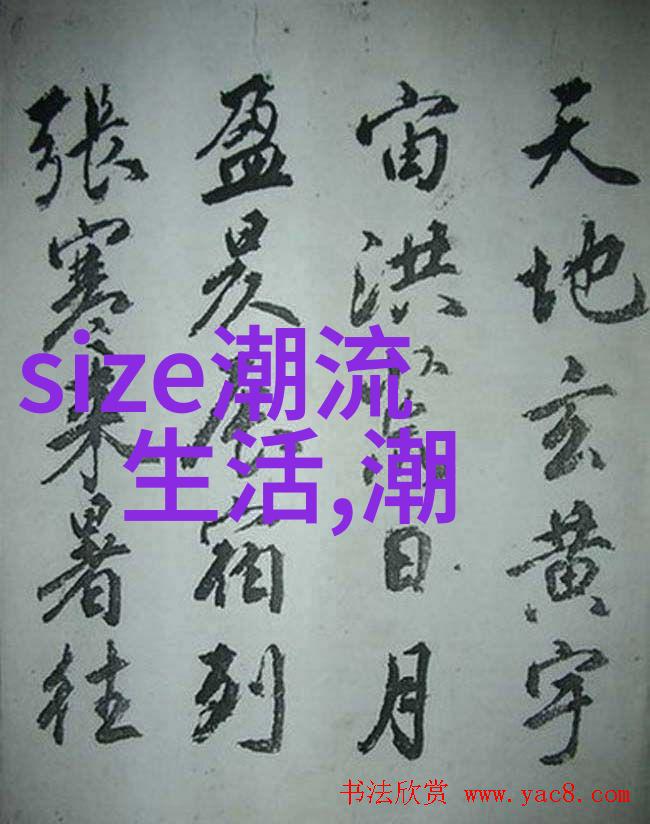 天地玄黄宇
宙洪日月
盈昃辰宿列
張寒来暑往
size潮流
生活,潮
书法欣赏 www.yac8.com